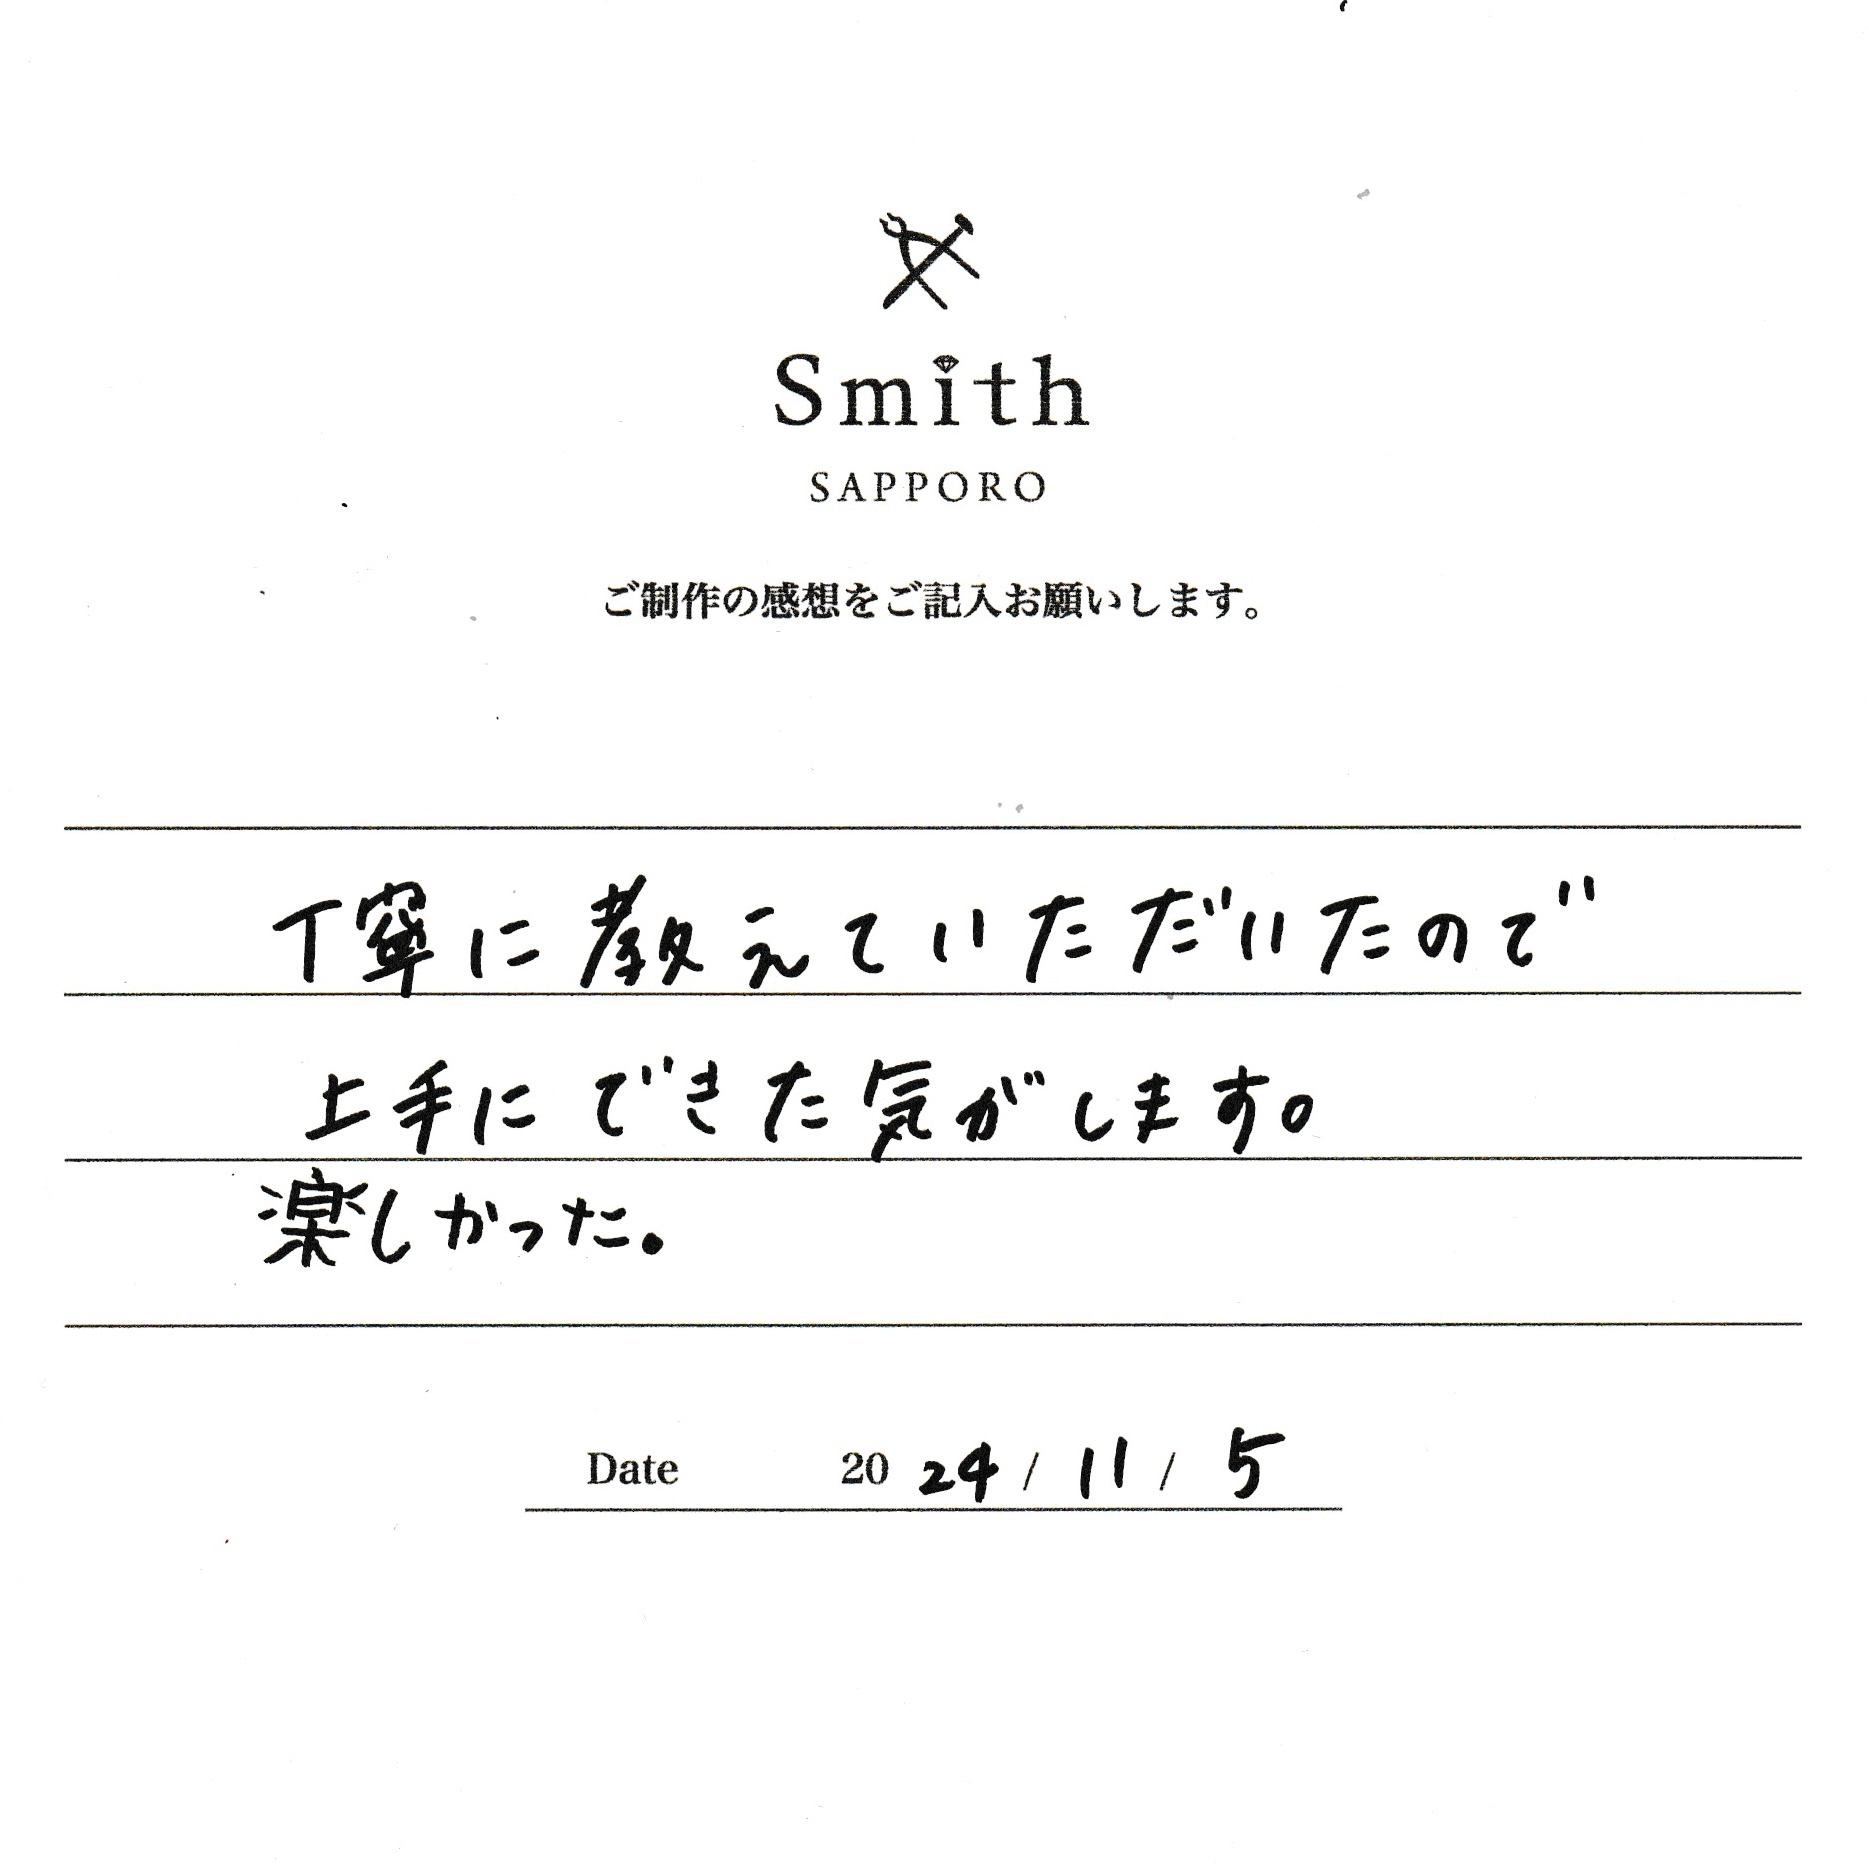 Smith
SAPPORO
ご制作の感想をご記入お願いします。
丁寧に教えていただいたので
上手にできた気がします。
楽しかった。
Date 2024 / 11 / 5